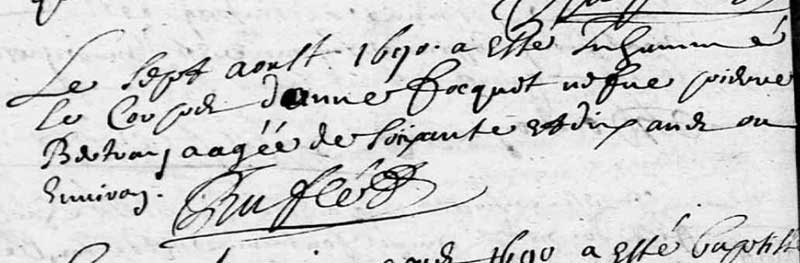 Le sept aoust 1690 a esté Inhummé
le Corps danne Jocquet vefve pierre
Bertran aagée de soixante et dix ans ou
Environ.
Bufléd
1690 a esté baptisé